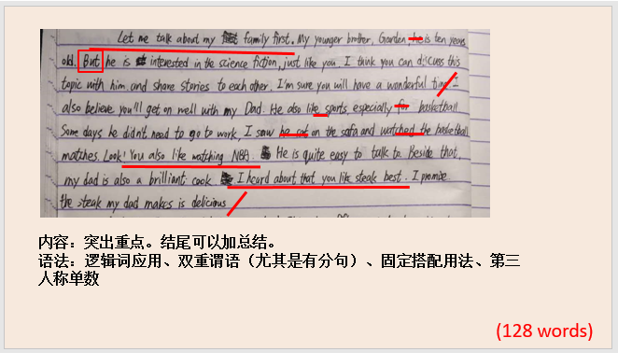 Let me talk about my family first. My younger brother, Gorden, he is ten years
old. But he is interested in the science fiction, just like you. I think you can dicuss this
topic with him and share stories to each other. I'm sure you will have a wonderful time. I
also believe you'll get on well with my Dad. He also like sports, especially for basketball
Some days he didn't need to go to work I saw he sat on the safa and watched the basketball
matches. Look! You also like watching NBA. He is quite easy to talk to. Beside that,
my dad is also a brilliant cook I heard about that you like steak best. I promise
the steak my dad makes is delicious
内容：突出重点。结尾可以加总结。
语法：逻辑词应用、双重谓语（尤其是有分句）、固定搭配用法、第三
人称单数
(128 words)